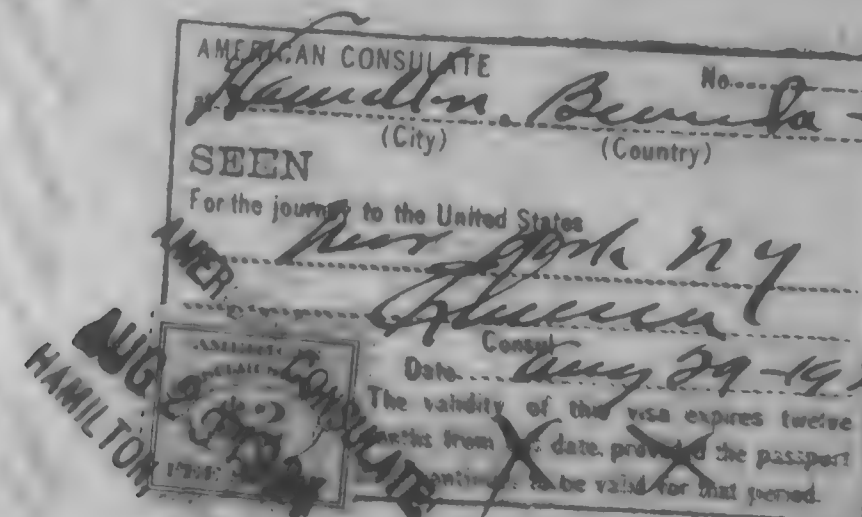 AMERICAN CONSULATE No.
at Hamilton, Bermuda
(City) (Country)
SEEN
For the journey to the United States
New York NY
Consul
Date Aug 29-19
The validity of this visa expires twelve
months from date, provided the passport
continues to be valid for that period.
AMER CONSULATE
AUG
HAMILTON